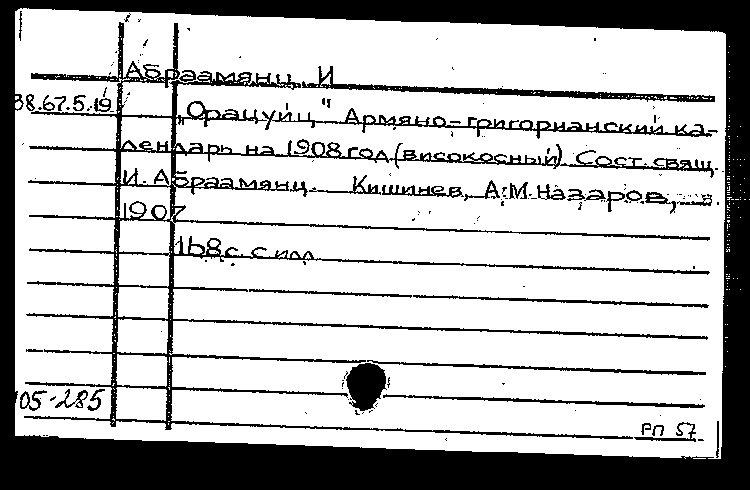 Абраамянц, И
38.67.5.19 „Орацуйц" Армяно-григорианский ка-
лендарь на 1908 год (високосный). Сост. свящ.
И. Абраамянц. Кишинев, А.М. Назаров,
1907
168 с. с илл
105-285
РП 57